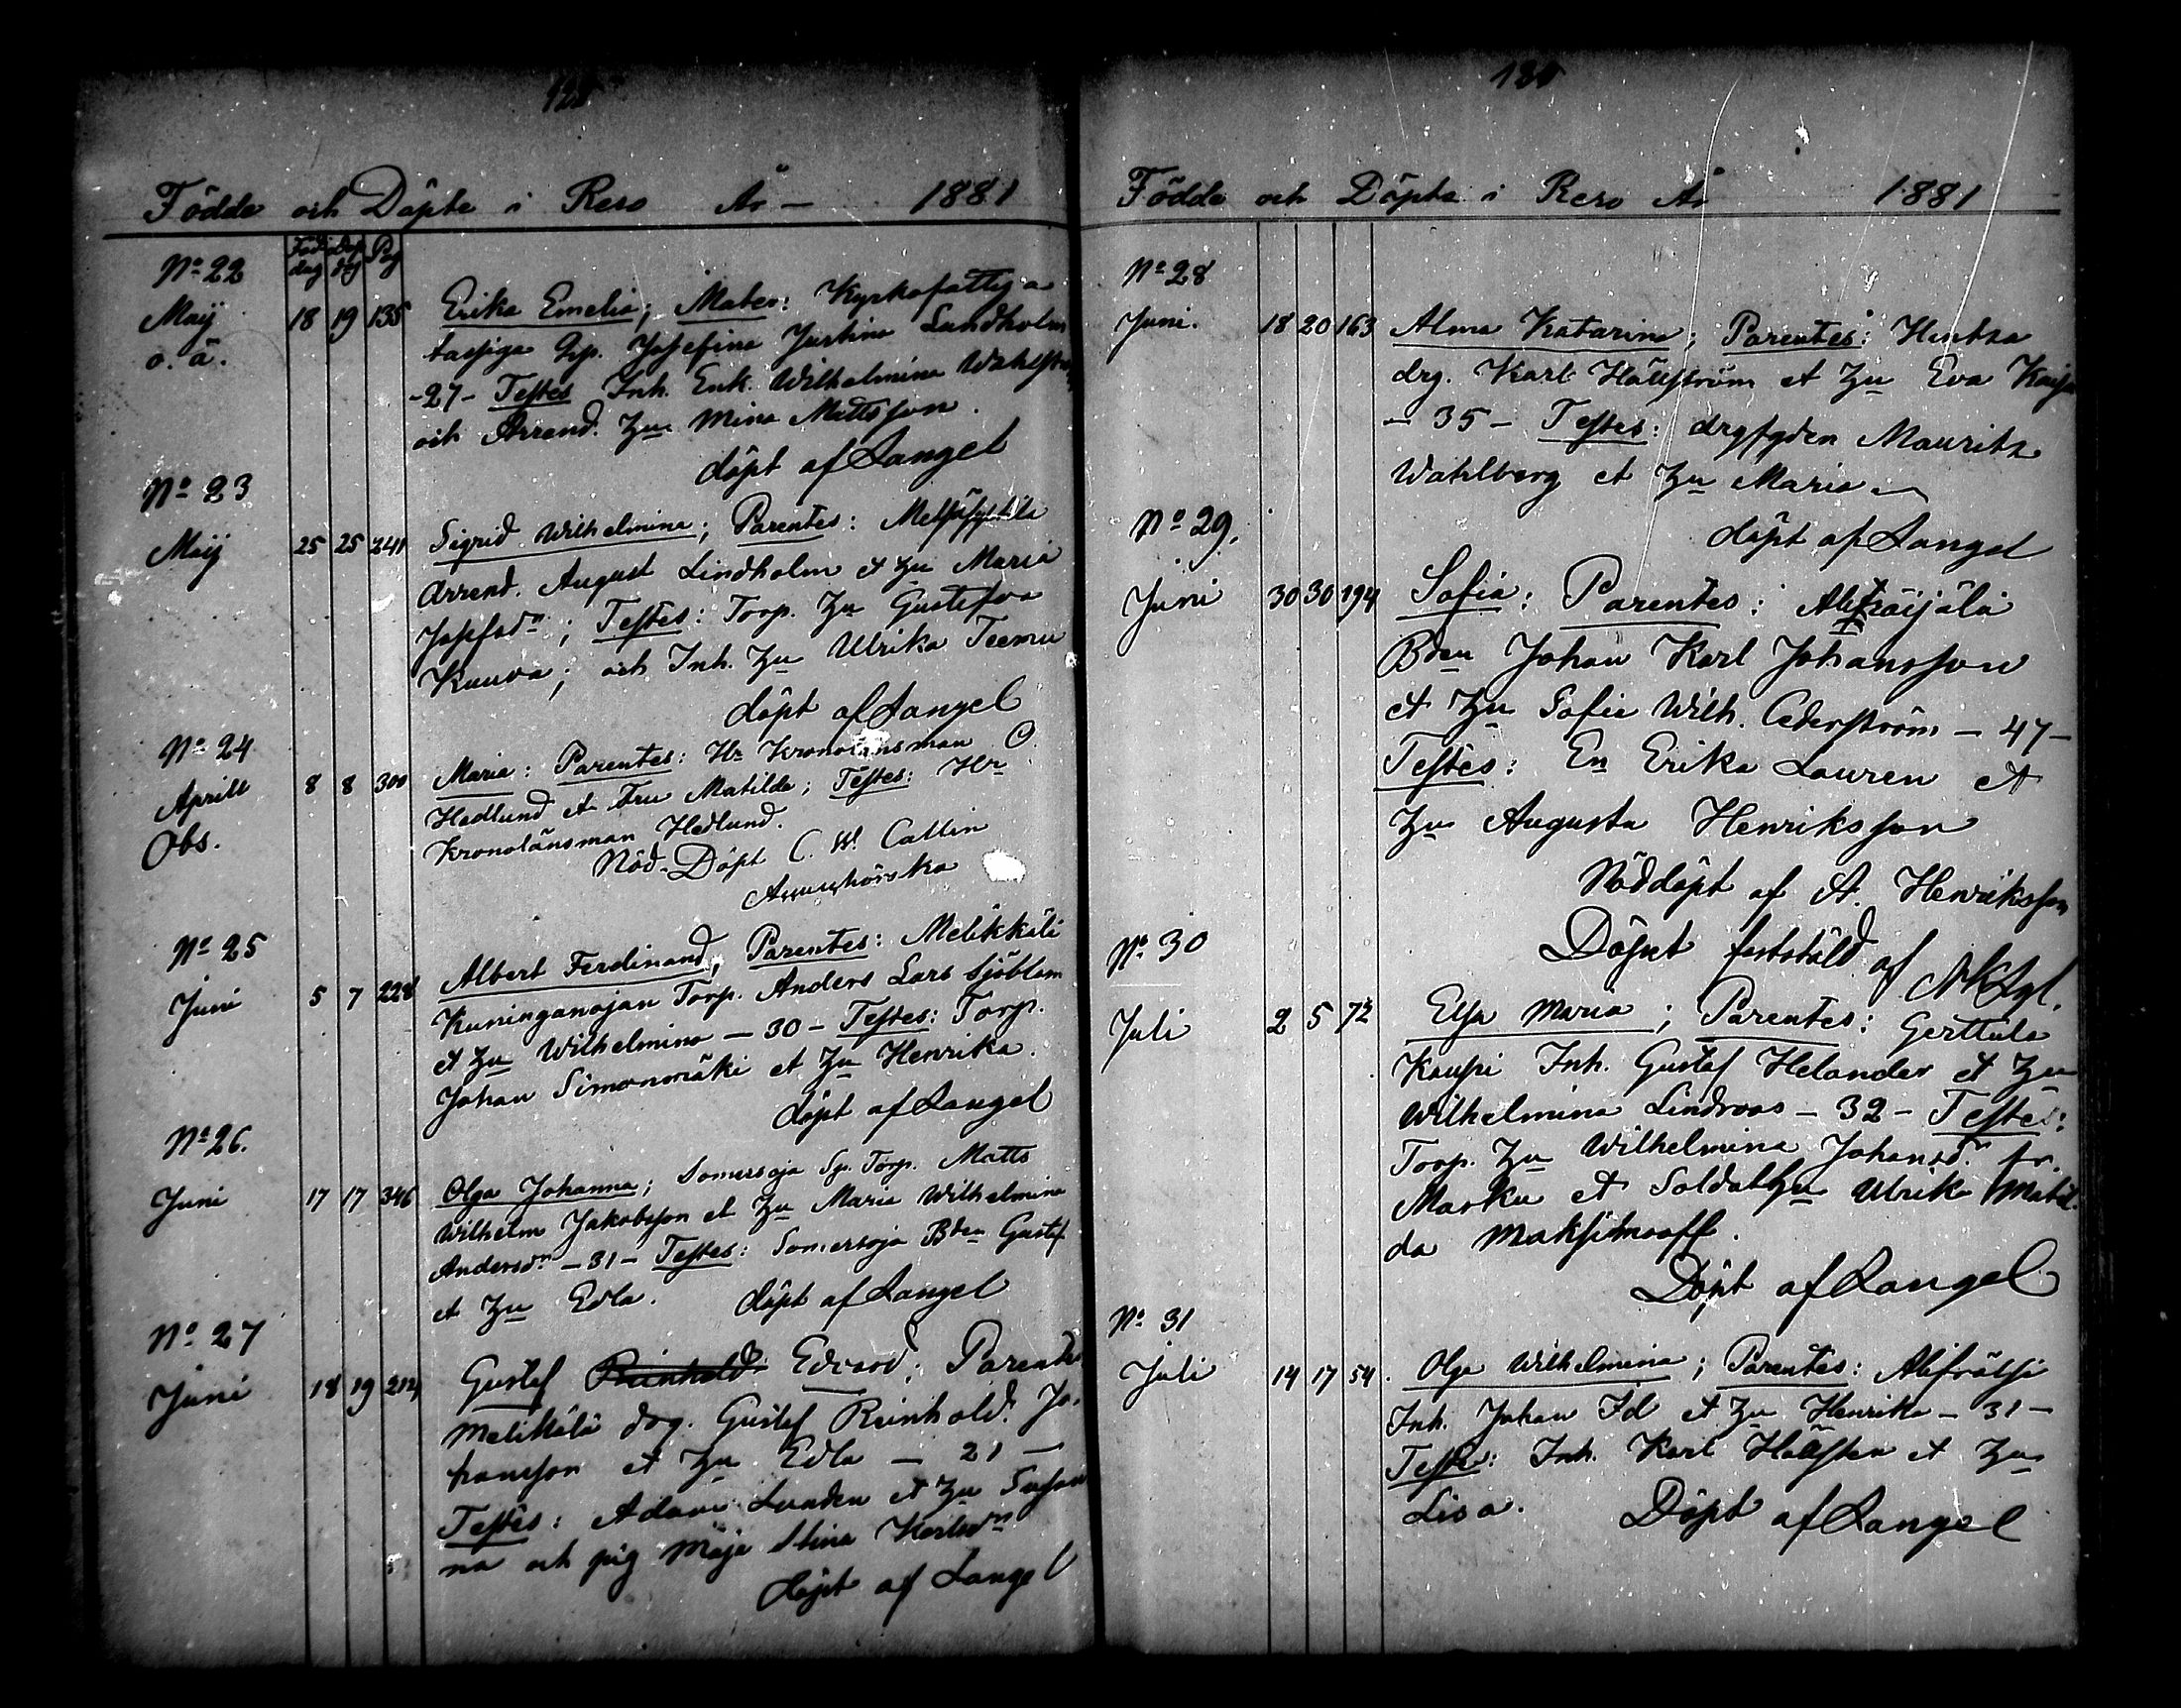 Födde och Döpte i Reso År – 1881
Föd. dag Döp. dag Pag
No 22
Maij 18 19 135 Erika Emelia; Mater: Kyrkofattig a
o. ä.
Josefina Justina Lundholm
-27- Testes Inh. Enk. Wilhelmina
och Arrend. hu Mina Mattsson.
döpt af Langel
No 23
Maij 25 25 241 Sigrid Wilhelmina; Parentes:
Arrend. August Lindholm et hu Maria
Josefsdr; Testes: Torp. hu Gustafva
Kuuva; och Inh. hu Ulrika Teemu
döpt af Langel
No 24
Aprill 8 8 300 Maria: Parentes: Hr Kronolänsman O.
Obs.
Hedlund et Fru Matilda; Testes: Hr
Kronolänsman Hedlund.
Nöd-Döpt C. W. Callin
No 25
Juni 5 7 228 Albert Ferdinand, Parentes: Melikkälä
Kuninganojan Torp. Anders Lars Sjöblom
et hu Wilhelmina – 30 – Testes: Torp.
Johan Simonmäki et hu Henrika.
döpt af Langel
No 26.
Juni 17 17 346 Olga Johanna; Somersoja Sp. Torp. Matts
Wilhelm Jakobsson et hu Maria Wilhelmina
Andersdr – 31 – Testes: Somersoja Bden Gustaf
et hu Edla. döpt af Langel
No 27
Juni 18 19 212 Gustaf Reinhold Edvard; Parentes
Melikälä drg. Gustaf Reinhold Jo-
hansson et hu Edla – 21 –
Testes: Adam Lunden et hu Susan
na och pig Maja Stina Karlsdr
döpt af Langel
130
Födde och Döpte i Reso År 1881
No 28
Juni. 18 20 163 Alma Katarina; Parentes: Hintsa
drg. Karl Hällström et hu Eva Kajsa
– 35 – Testes: drgfgden Mauritz
Wahlberg et hu Maria
döpt af Langel
No 29.
Juni 30 30 194 Sofia: Parentes:
Bden Johan Karl Johansson
et hu Sofia Wilh. Cederström – 47 –
Testes: En Erika Lauren et
hu Augusta Henriksson
Nöddöpt af A. Henriksson
Döpet fastställd af
No 30
Juli 2 5 72 Elsa Maria; Parentes: Gerttula
Kaupi Inh. Gustaf Helander et hu
Wilhelmina Lindroos – 32 – Testes:
Torp. hu Wilhelmina Johansdr fr.
Marku et Soldathu Ulrika Matil-
da Maksimoff.
Döpt af Langel
No 31
Juli 14 17 54. Olga Wilhelmina; Parentes: Alifrälsi
Inh. Johan Id et hu Henrika – 31 –
Testes: Inh. Karl Hällsten et hu
Lisa. Döpt af Langel